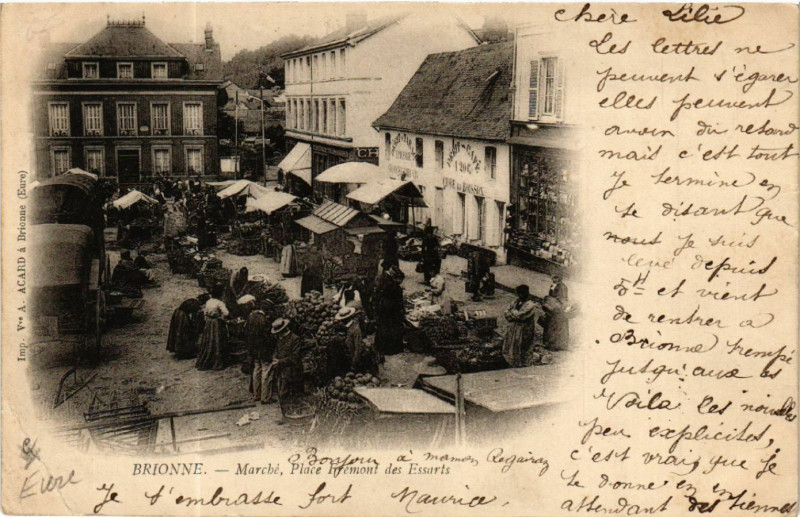 chère Lilie
Les lettres ne
peuvent s'égarer
elles peuvent
avoir du retard
mais c'est tout
Je termine en
te disant que
nous je suis
levé depuis
5H et vient
de rentrer a
Brionne trempé
jusqu'aux os
Voila les nouvelles
peu explicites,
c'est vrai que je
te donne en en
attendant des tiennes
Imp. Vve A. ACARD à Brionne (Eure)
Bonjour à maman
BRIONNE. — Marché, Place Frémont des Essarts
Je t'embrasse fort Maurice.
Eure